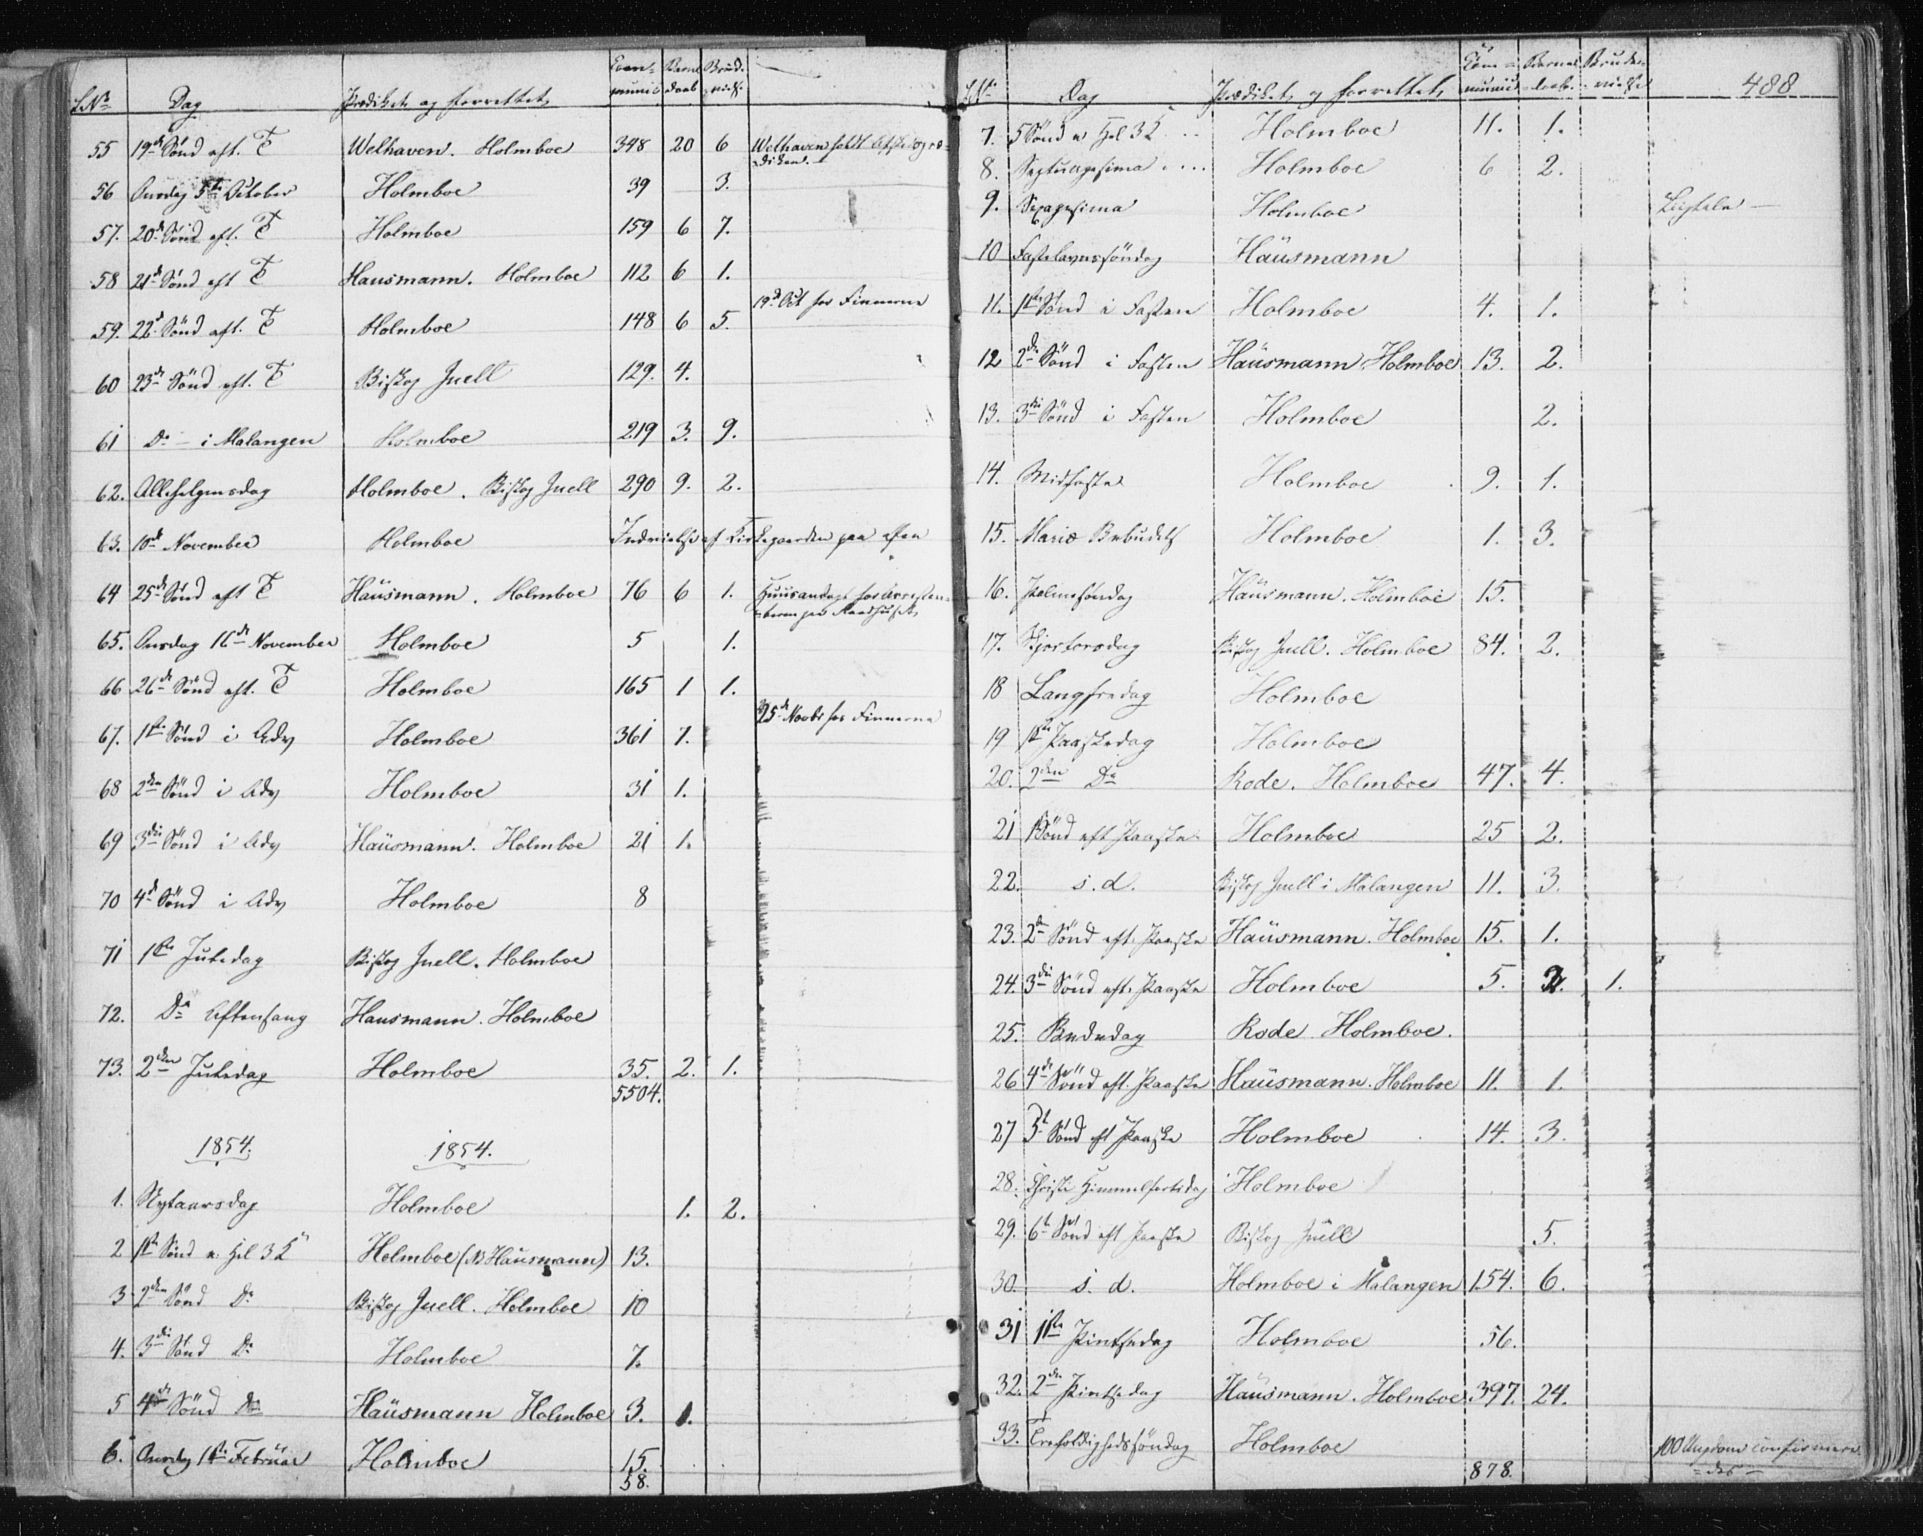 LNo Dag Prædiket og forrettet Communic Barnedaab Brudevielse
55 19de Sønd eft. T Welhaven. Holmboe 348 20 6 Welhaven holdt Afskedspræ-
diken.
56 Onsdag 5te October Holmboe 39 3.
57. 20de Sønd eft. T Holmboe 159 6 7.
58 21de Sønd eft T Hausmann. Holmboe 112 6 1.
19de Oct for Finnerne
59. 22de Sønd eft. T Holmboe 148 6 5.
60 23de Sønd eft. T Biskop Juell 129. 4.
61 Do - i Malangen Holmboe 219 3. 9.
62. Allehelgensdag Holmboe. Biskop Juell 290 9. 2.
63. 10de November Holmboe Indvielse af Kirkegaarden paa
64 25de Sønd eft T Haüsmann. Holmboe 76 6 1. Huusandagt for Arresten-
terne paa Raadhuset
65. Onsdag 16de November Holmboe 5 1.
66 26de Sønd eft. T Holmboe 165 1 1.
25de Novbr for Finnerne
67. 1ste Sønd i Adv Holmboe 361 7.
68 2den Sønd i Adv Holmboe 31 1.
69 3die Sønd i Adv Haüsmann. Holmboe 21 1.
70 4de Sønd i Adv Holmboe 8
71 1ste Juledag Biskop Juell. Holmboe
72. Do Aftensang Hausmann. Holmboe
73. 2den Juledag Holmboe 35. 2. 1.
5504.
1854. 1854.
1. Nytaarsdag Holmboe 1. 2.
2 1ste Sønd e. Hel 3 K Holmboe (NB Haüsmann) 13.
3 2den Sønd Do Biskop Juell. Holmboe 10
4. 3die Sønd Do Holmboe 7.
5 4de Sønd Do Haüsmann Holmboe 3. 1.
6. Onsdag 1ste Februar Holmboe 15.
58.
LNo Dag Prædiket og forrettet Communic Barnedaab Brudevielse 488
7. 5 Sønd e Hel 3 K Holmboe 11. 1.
8. Septuagesima Holmboe 6 2.
9. Sexagesima Holmboe
10 Fastelavnssöndag Haüsmann
11. 1ste Sønd i Fasten Holmboe 4. 1.
12 2den Sønd i Fasten Haüsmann. Holmboe 13. 2.
13. 3die Sønd i Fasten Holmboe 2.
14. Midfaste Holmboe 9. 1.
15. Mariæ Bebudelse Holmboe 1. 3.
16. Palmesöndag Haüsmann. Holmboe 15.
17. Skjertorsdag Biskop Juell. Holmboe 84. 2.
18 Langfredag Holmboe
19 1ste Paaskedag Holmboe
20. 2den Do Rode. Holmboe 47. 4.
21 1 Sønd eft Paaske Holmboe 25 2.
22. s. d. Biskop Juell i Malangen 11. 3.
23. 2den Sønd eft. Paaske Haüsmann. Holmboe 15. 1.
24. 3die Sønd eft. Paaske Holmboe 5. 2. 1.
25. Bededag Rode. Holmboe.
26 4de Sønd eft. Paaske Haüsmann. Holmboe 11. 1.
27 5t Sønd eft Paaske Holmboe 14. 3.
28. Christi Himmelfartsdag Holmboe
29. 6t Sønd eft Paaske Biskop Juell 5.
30. s. d. Holmboe i Malangen 154. 6.
31 1ste Pintsedag Holmboe 56.
32. 2den Pintsedag Haüsmann. Holmboe 397. 24.
33. Trefoldighedssöndag Holmboe 100 Ungdom confirmere-
des
878.